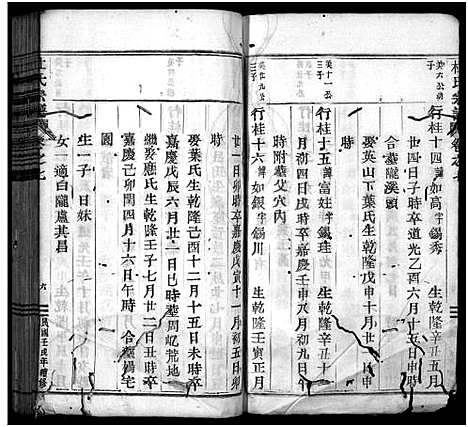 杜氏宗譜
英六公三子
行桂十四 諱如高字錫秀 生乾隆辛丑五月
廿四日子時卒道光乙酉六月十五日申時
合墓隴溪頭
娶英山下葉氏生乾隆戊申十月廿八日
時卒
英十一公三子
行桂十五 諱富娃字錫珪 生乾隆
月初四日戌時卒嘉慶壬申八月初九日午
時附墓父穴內
行桂十六 諱如銀字錫川 生乾隆壬寅正月
廿一日卯時卒嘉慶戊寅十一月初五日卯
娶葉氏生乾隆己酉十二月十五日未時卒
嘉慶戊辰六月廿二日巳時墓周屺荒地
繼娶應氏生乾隆壬子七月二日丑時卒
嘉慶己卯閏四月十六日午時 合墓楊宅
園
生一子 日妹
女一適白隴盧其昌
卷之七
六
民國壬戌年續修